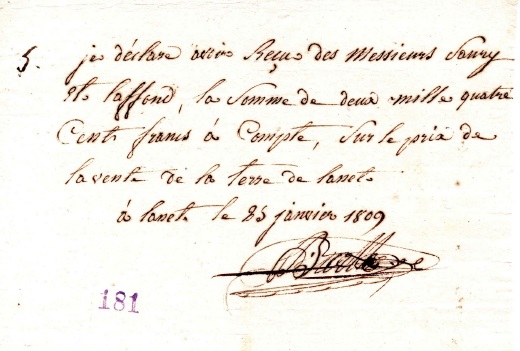 5. je déclare avoir Reçu des Messieurs Saury
et laffond, la Somme de deux mille quatre
Cent francs à Compte, Sur le prix de
la vente de la terre de lanet.
à lanet le 25 janvier 1809
181